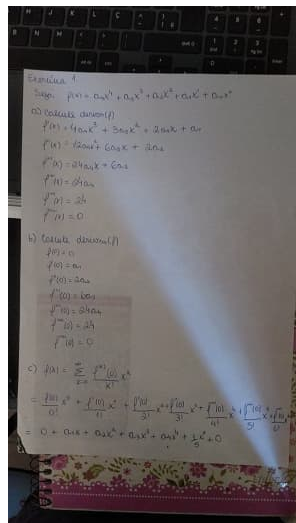 Exercício 1
Seja f(x) = a₄x⁴ + a₃x³ + a₂x² + a₁x¹ + a₀x⁰
a) Calcule derivar(f)
f'(x) = 4a₄x³ + 3a₃x² + 2a₂x + a₁
f''(x) = 12a₄x² + 6a₃x + 2a₂
f'''(x) = 24a₄x + 6a₃
f''''(x) = 24a₄
f'''''(x) = 24
f''''''(x) = 0
b) Calcule derivar(f)
f(0) = 0
f'(0) = a₁
f''(0) = 2a₂
f'''(0) = 6a₃
f''''(0) = 24a₄
f'''''(0) = 24
f''''''(0) = 0
c) f(x) = Σ f⁽ᵏ⁾(0)/k! xᵏ
= f(0)/0! x⁰ + f'(0)/1! x¹ +
= 0 + a₁x + a₂x² + a₃x³ + a₄x⁴ + 1/5 x⁵ + 0